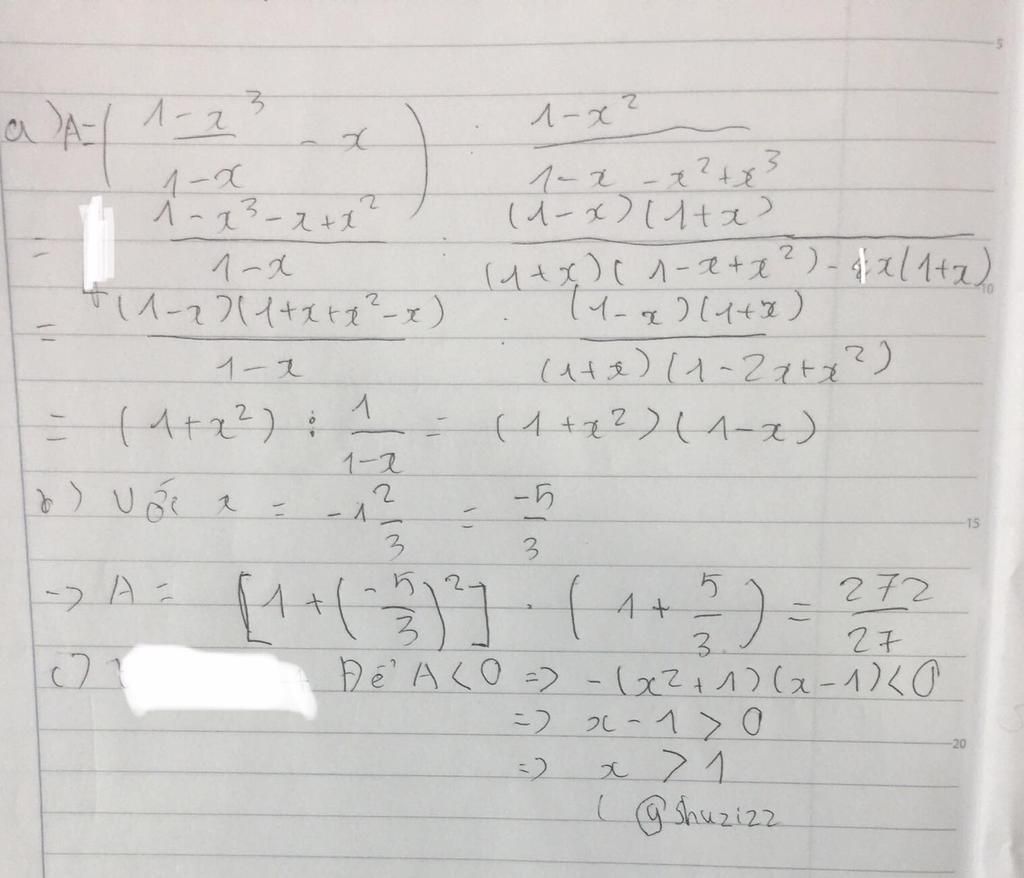 a) A = ( \frac{1-x^3}{1-x} - x ) : \frac{1-x^2}{1-x-x^2+x^3}
= \frac{1-x^3-x+x^2}{1-x} : \frac{(1-x)(1+x)}{(1+x)(1-x+x^2)-x(1+x)}
= \frac{(1-x)(1+x+x^2-x)}{1-x} : \frac{(1-x)(1+x)}{(1+x)(1-2x+x^2)}
= (1+x^2) : \frac{1}{1-x} = (1+x^2)(1-x)
b) Với x = -1\frac{2}{3} = \frac{-5}{3}
-> A = [1+(\frac{-5}{3})^2] . (1+\frac{5}{3}) = \frac{272}{27}
c) Để A<0 => -(x^2+1)(x-1)<0
=> x-1 > 0
=> x > 1
( @shuzizz